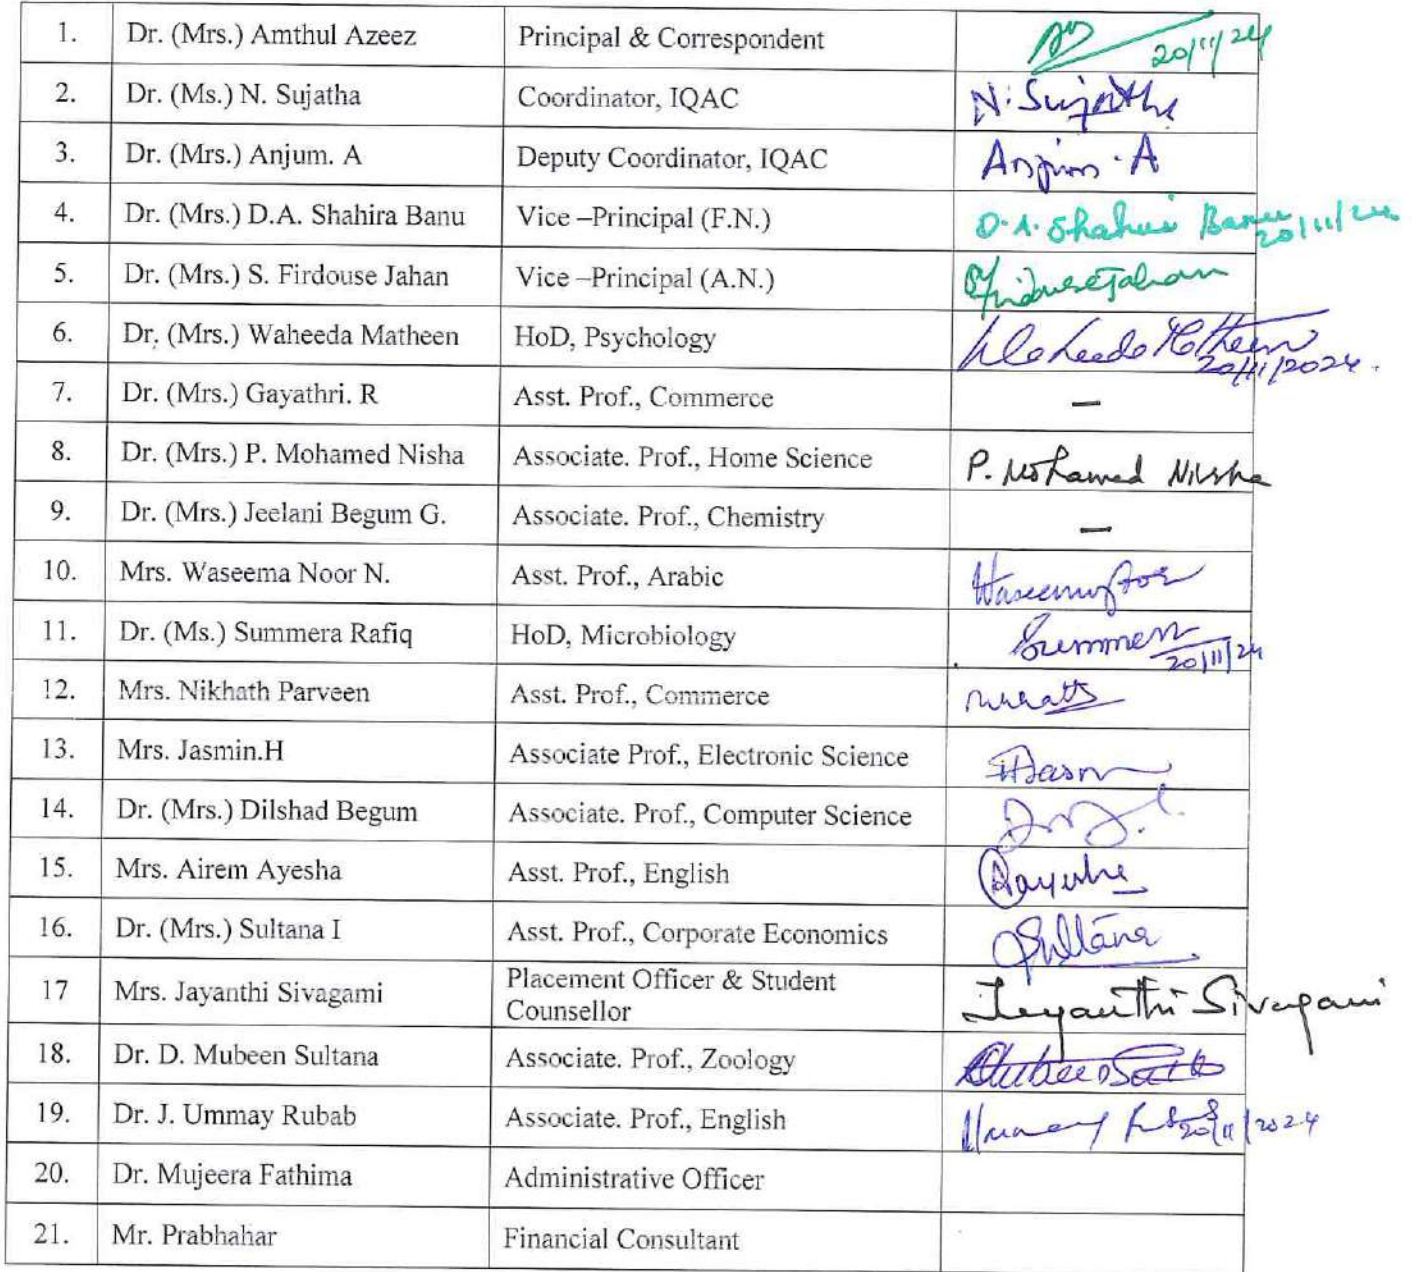 1. Dr. (Mrs.) Amthul Azeez Principal & Correspondent 20/11/24
2. Dr. (Ms.) N. Sujatha Coordinator, IQAC N. Sujatha
3. Dr. (Mrs.) Anjum. A Deputy Coordinator, IQAC Anjum. A
4. Dr. (Mrs.) D.A. Shahira Banu Vice –Principal (F.N.) D.A. Shahira Banu 20/11/24
5. Dr. (Mrs.) S. Firdouse Jahan Vice –Principal (A.N.) S. Firdouse Jahan
6. Dr. (Mrs.) Waheeda Matheen HoD, Psychology Waheeda Matheen 20/11/2024.
7. Dr. (Mrs.) Gayathri. R Asst. Prof., Commerce –
8. Dr. (Mrs.) P. Mohamed Nisha Associate. Prof., Home Science P. Mohamed Nisha
9. Dr. (Mrs.) Jeelani Begum G. Associate. Prof., Chemistry –
10. Mrs. Waseema Noor N. Asst. Prof., Arabic Waseema Noor
11. Dr. (Ms.) Summera Rafiq HoD, Microbiology Summera 20/11/24
12. Mrs. Nikhath Parveen Asst. Prof., Commerce
13. Mrs. Jasmin.H Associate Prof., Electronic Science
14. Dr. (Mrs.) Dilshad Begum Associate. Prof., Computer Science
15. Mrs. Airem Ayesha Asst. Prof., English Aayesha
16. Dr. (Mrs.) Sultana I Asst. Prof., Corporate Economics Sultana
17 Mrs. Jayanthi Sivagami Placement Officer & Student
Counsellor Jeyanthi Sivagami
18. Dr. D. Mubeen Sultana Associate. Prof., Zoology
19. Dr. J. Ummay Rubab Associate. Prof., English 20/11/2024
20. Dr. Mujeera Fathima Administrative Officer
21. Mr. Prabhahar Financial Consultant